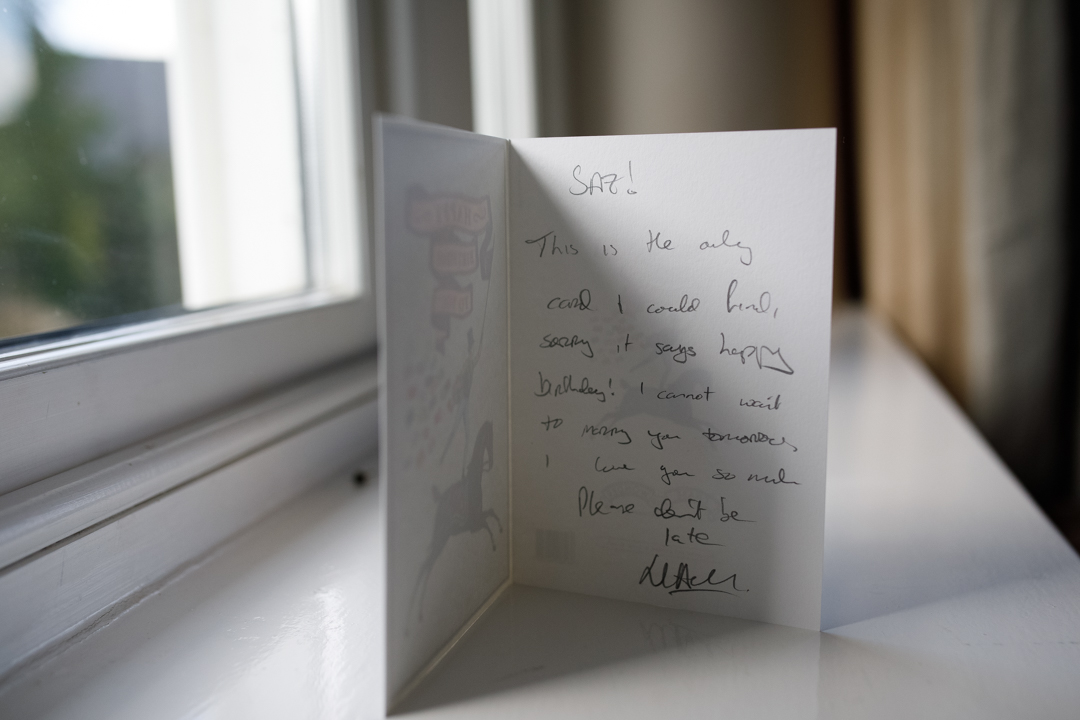 SAZ!
This is the only
card I could find,
sorry it says happy
birthday! I cannot wait
to marry you tomorrow,
I love you so much
Please don't be
late